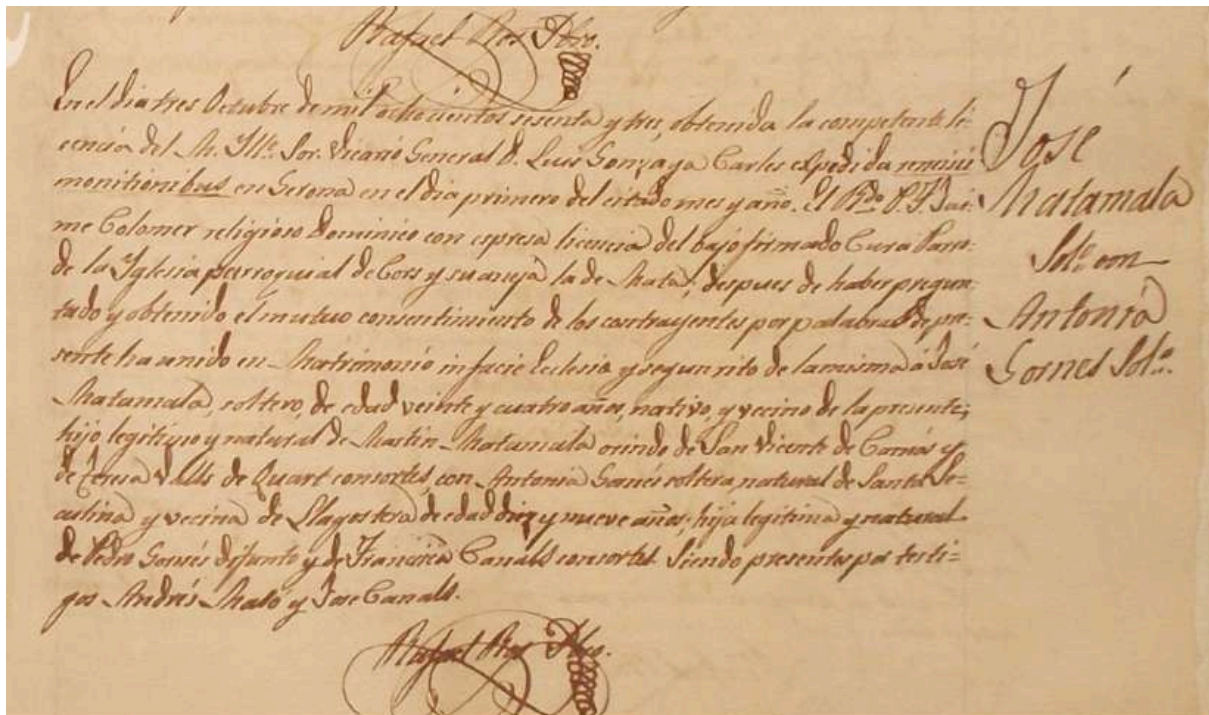 Rafael Ros Pbro.
En el dia tres Octubre de mil ochocientos sesenta y tres, obtenida la competente li-
cencia del M. Iltre. Sor. Vicario General D. Luis Gonzaga Carles expedida remissis
monitionibus en Gerona en el dia primero del citado mes y año. El Rdo. P. F. Jai-
me Colomer religioso Dominico con espresa licencia del bajo firmado Cura Parro.
de la Yglesia parroquial de Cors y su aneja la de Mata; despues de haber pregun-
tado y obtenido el mutuo consentimiento de los contrayentes por palabras de pre-
sente ha unido en Matrimonio in facie Eclesia y segun rito de la misma á José
Matamala, soltero, de edad veinte y cuatro años, nativo, y vecino de la presente;
hijo legitimo y natural de Martin Matamala oriundo de San Vicente de Camós y
de Teresa Valls de Quart consortes, con Antonia Gornés soltera, natural de Santa Se-
culina y vecina de Llagostera de edad diez y nueve años; hija legitima y natural
de Pedro Gornés difunto y de Francisca Canals consortes. Siendo presentes por testi-
gos Andrés Masó y Jose Canals.
Rafael Ros Pbro.
José
Matamala
Solo. con
Antonia
Gornes Sola.